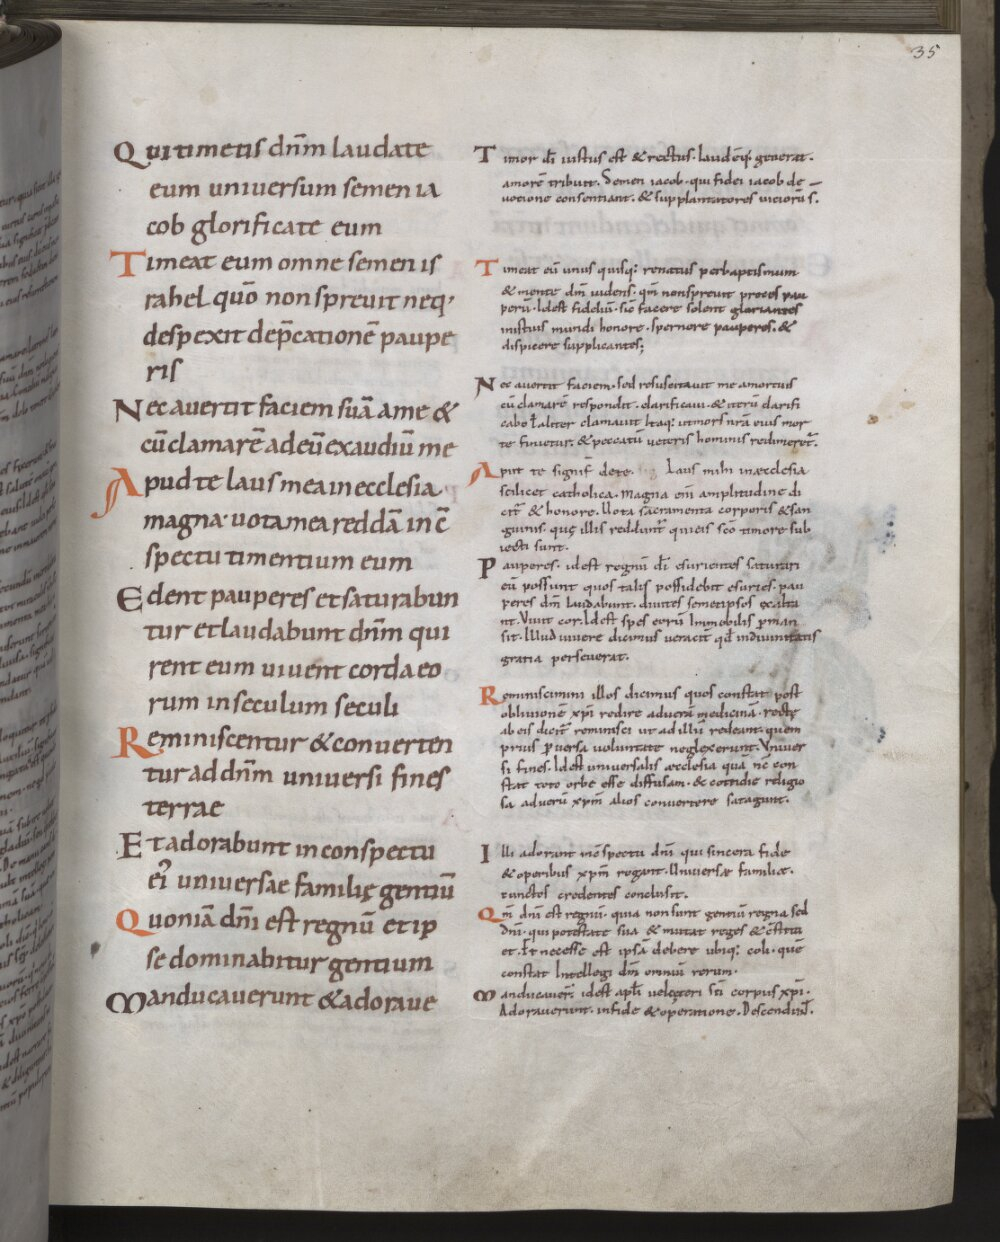 35
Qui timetis dnm̄ laudate
eum uniuersum semen ia
cob glorificate eum
Timeat eum omne semen is
rahel quō non spreuit neq;
despexit dep̄cationē paupe
ris
Nec auertit faciem suā a me &
cū clamarē ad eū exaudiu̅ me
Apud te laus mea in ecclesia
magna uota mea reddā in c̄
spectu timentium eum
Edent pauperes et saturabun
tur et laudabunt dnm̄ qui
rent eum uiuent corda eo
rum in seculum seculi
Reminiscentur & conuerten
tur ad dnm̄ uniuersi fines
terrae
Et adorabunt in conspectu
ei' uniuersae familię gentiū
Quoniā dnī est regnū et ip
se dominabitur gentium
Manducauerunt & adoraue
Timor dī iustus est & rectus. laud̄ eq; generat.
amorē tribuit. Semen iacob. qui fidei iacob de
uotione consentiant. & supplantatores uicioru̅ s̄.
Timeat eū unus quisq; renatus per baptismum
& mente dm̄ uidens. qm̄ non spreuit preces pau
perū. Idest fideliū. sic̄ facere solent gloriantes
iniustius mundi honore. spernere pauperes. &
dispicere supplicantes;
Nec auertit faciem. sed resuscitauit me a mortuis
cū clamarē respondit. clarificaui. & iterū clarifi
cabo ł aliter clamauit Itaq; ut mors nrā eius mor
te finietur. & peccatū ueteris hominis redimeret̄.
Aput te signif̄ de te. Laus mihi in æcclesia
scilicet catholica. Magna em̄ amplitudine di
cit̄ & honore. Uota sacramenta corporis & san
guinis. quę illis reddunt̄ qui eis sc̄o timore sub
iecti sunt.
Pauperes. idest regnū dī esurientes saturari
eū possunt quos talis possidebit esuries. pau
peres dm̄ laudabunt. diuites semet ipsos exalta
nt. Viuit cor. Idest spes eorū Inmobilis p̄man
sit. Illud uiuere dicimus ueracit̄ qd̄ in diuinitatis
gratia perseuerat.
Reminiscimini illos dicimus quos constat post
obliuionē xp̄i redire ad uerā medicinā. rectę
ab eis dicit̄ reminisci ut ad illū redeant. quem
prius p̄uersa uoluntate neglexerunt. Vniuer
si fines. Idest uniuersalis æcclesia quā nc̄ con
stat toto orbe esse diffusam. & cottidie religio
sa ad uerū xp̄m alios conuertere satagunt.
Illi adorant in c̄spectu dnī qui sincera fide
& operibus xp̄m rogant. Uniuersæ familiæ.
cunctos credentes conclusit.
Qm̄ dnī est regnū. quia non sunt gentiū regna sed
dnī. qui potestate sua & mutat reges & c̄stitu
et. Et necesse est ipsā debere ubiq; coli. que
constat Intellegi dm̄ omniū rerum.
Manducauer̄. idest apl̄i uel ceteri scī corpus xp̄i.
Adorauerunt. in fide & operatione. Descendun̄t.